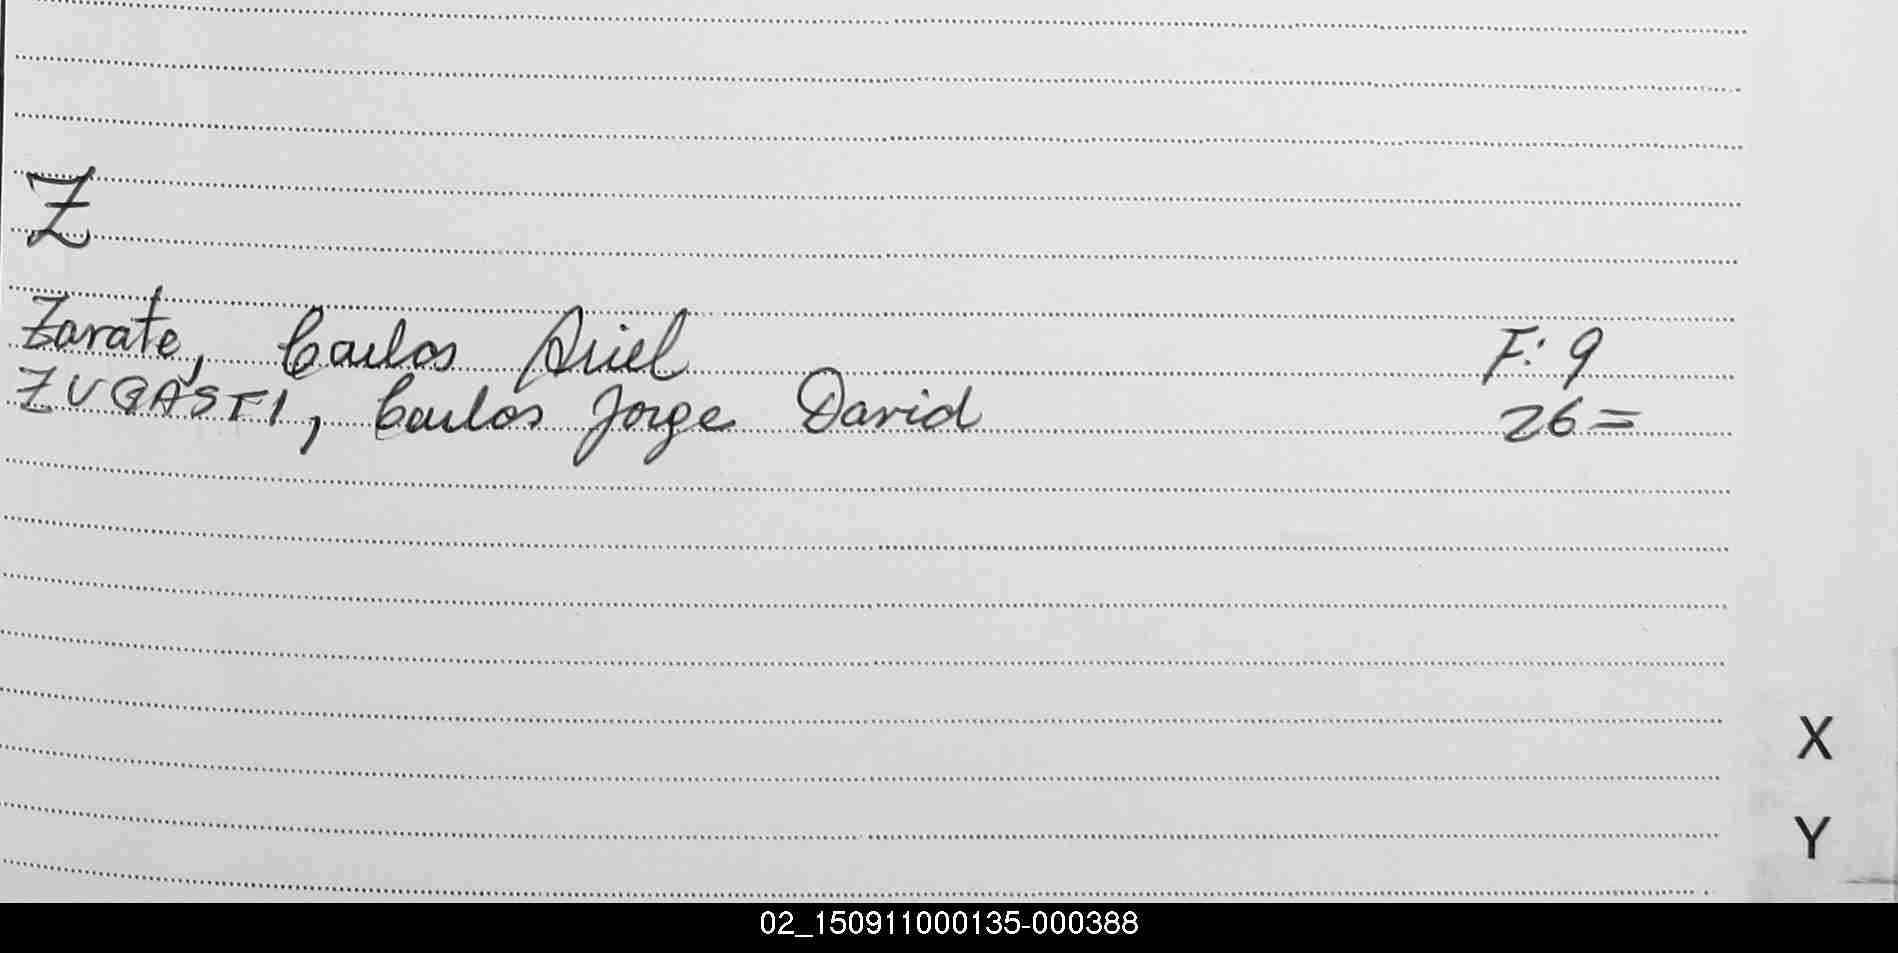 Z
Zarate, Carlos Ariel F: 9
ZUGASTI, Carlos Jorge David 26=
X
Y
02_150911000135-000388